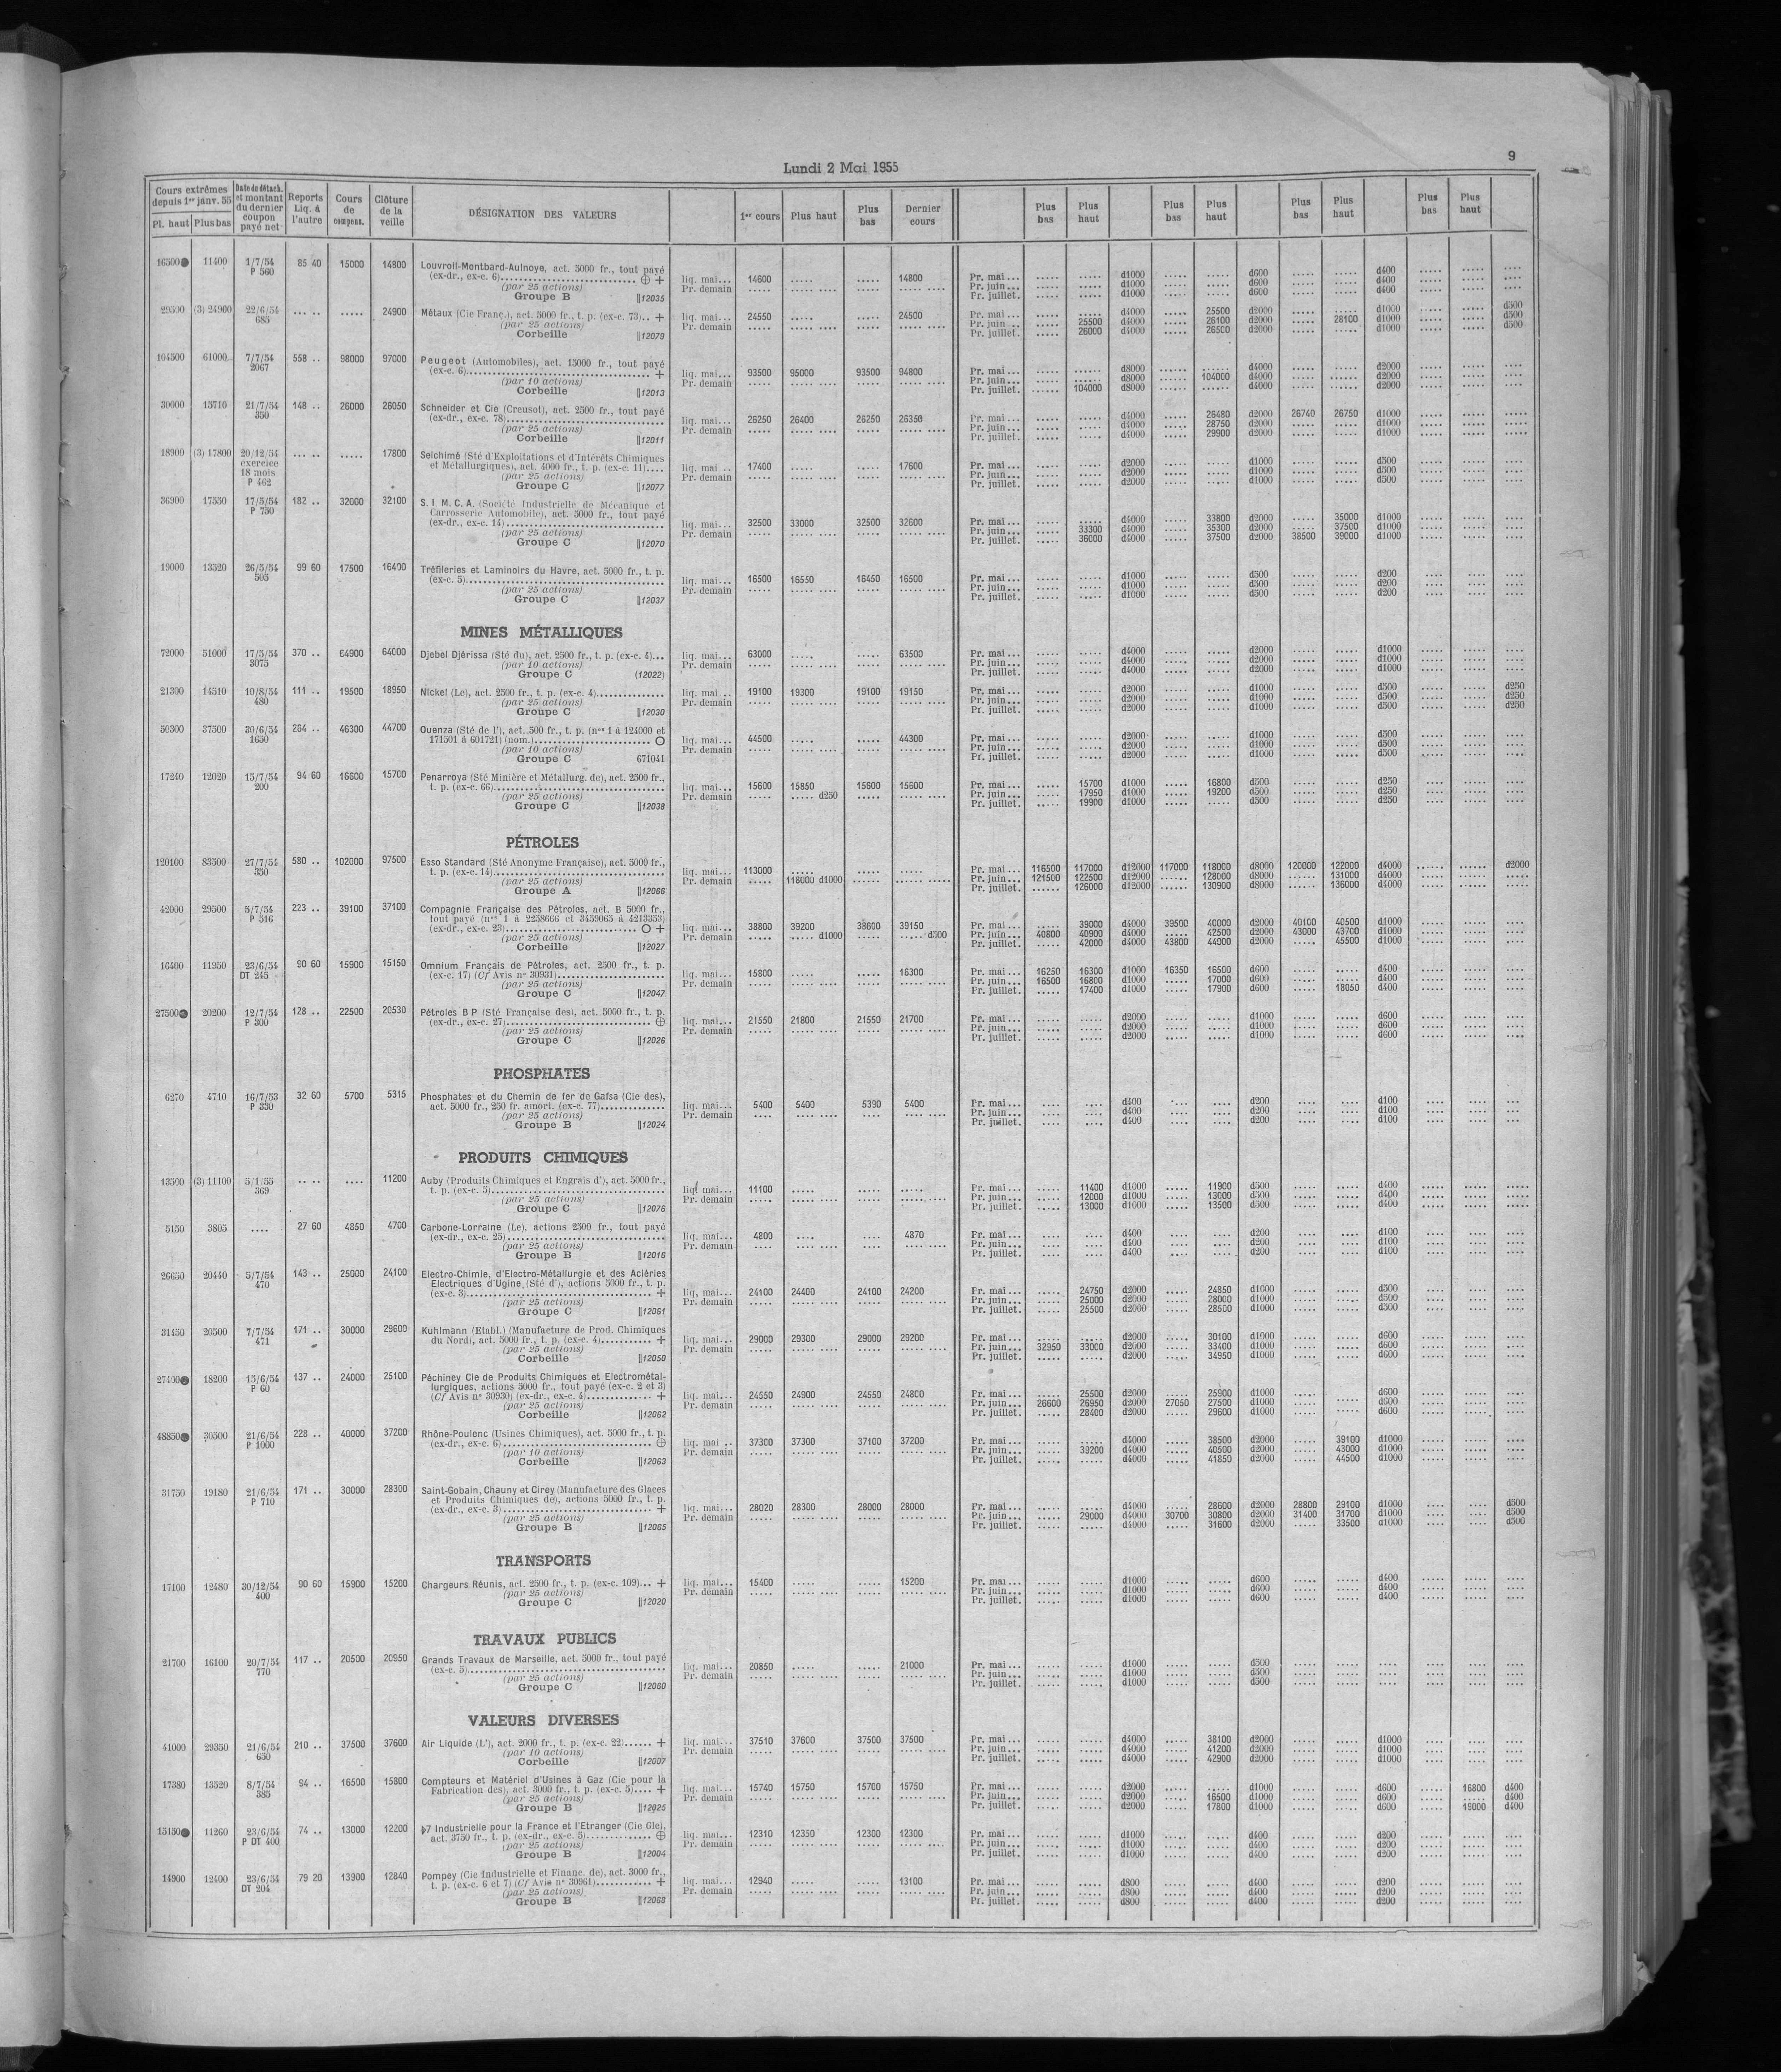 Lundi 2 Mai 1955
9
Cours extrêmes depuis 1er janv. 55 Pl. haut Plus bas
Date de détach. et montant du dernier coupon payé net
Reports Liq. à l'autre
Cours de compens.
Clôture de la veille
DÉSIGNATION DES VALEURS
1er cours Plus haut Plus bas Dernier cours
Plus bas Plus haut Plus bas Plus haut Plus bas Plus haut Plus bas Plus haut
16500 11400 1/7/54 85 40 15000 14800 Louvroil-Montbard-Aulnoye, act. 5000 fr., tout payé
P 560 (ex-dr., ex-c. 6) ⊕ + liq. mai... 14600 ..... ..... 14800 Pr. mai... d1000 d600 d400
(par 25 actions) Pr. demain Pr. juin... d1000 d600 d400
Groupe B ||12035 Pr. juillet. d1000 d600 d400
29500 (3) 24900 22/6/54 ... .. ..... 24900 Métaux (Cie Franç.), act. 5000 fr., t. p. (ex-c. 73).. +
685 (par 25 actions) liq. mai... 24550 ..... ..... 24500 Pr. mai... d4000 25500 d2000 d1000 d500
Pr. demain Pr. juin... 25500 d4000 26100 d2000 28100 d1000 d500
Corbeille ||12079 Pr. juillet. 26000 d4000 26500 d2000 d1000 d500
104500 61000 7/7/54 558 .. 98000 97000 Peugeot (Automobiles), act. 15000 fr., tout payé
2067 (ex-c. 6) + liq. mai... 93500 95000 93500 94800 Pr. mai... d8000 d4000 d2000
(par 10 actions) Pr. demain Pr. juin... d8000 104000 d4000 d2000
Corbeille ||12013 Pr. juillet. 104000 d8000 d4000 d2000
30000 15710 21/7/54 148 .. 26000 26050 Schneider et Cie (Creusot), act. 2500 fr., tout payé
350 (ex-dr., ex-c. 78) liq. mai... 26250 26400 26250 26350 Pr. mai... d4000 26480 d2000 26740 26750 d1000
(par 25 actions) Pr. demain Pr. juin... d4000 28750 d2000 d1000
Corbeille ||12011 Pr. juillet. d4000 29900 d2000 d1000
18900 (3) 17800 20/12/54 ... .. ..... 17800 Selchimé (Sté d'Exploitations et d'Intérêts Chimiques
exercice et Métallurgiques), act. 4000 fr., t. p. (ex-c. 11).... liq. mai .. 17400 ..... ..... 17600 Pr. mai... d2000 d1000 d500
18 mois (par 25 actions) Pr. demain Pr. juin... d2000 d1000 d500
P 462 Groupe C ||12077 Pr. juillet. d2000 d1000 d500
36900 17550 17/5/54 182 .. 32000 32100 S. I. M. C. A. (Société Industrielle de Mécanique et
P 750 Carrosserie Automobile), act. 5000 fr., tout payé
(ex-dr., ex-c. 14) liq. mai... 32500 33000 32500 32600 Pr. mai... d4000 33800 d2000 35000 d1000
(par 25 actions) Pr. demain Pr. juin... 33300 d4000 35300 d2000 37500 d1000
Groupe C ||12070 Pr. juillet. 36000 d4000 37500 d2000 38500 39000 d1000
19000 13520 26/5/54 99 60 17500 16400 Tréfileries et Laminoirs du Havre, act. 5000 fr., t. p.
505 (ex-c. 5) liq. mai... 16500 16550 16450 16500 Pr. mai... d1000 d500 d200
(par 25 actions) Pr. demain Pr. juin... d1000 d500 d200
Groupe C ||12037 Pr. juillet. d1000 d500 d200
MINES MÉTALLIQUES
72000 51000 17/5/54 370 .. 64900 64000 Djebel Djérissa (Sté du), act. 2500 fr., t. p. (ex-c. 4)... liq. mai... 63000 ..... ..... 63500 Pr. mai... d4000 d2000 d1000
3075 (par 10 actions) Pr. demain Pr. juin... d4000 d2000 d1000
Groupe C (12022) Pr. juillet. d4000 d2000 d1000
21300 14510 10/8/54 111 .. 19500 18950 Nickel (Le), act. 2500 fr., t. p. (ex-c. 4) liq. mai .. 19100 19300 19100 19150 Pr. mai... d2000 d1000 d500 d250
480 (par 25 actions) Pr. demain Pr. juin... d2000 d1000 d500 d250
Groupe C ||12030 Pr. juillet. d2000 d1000 d500 d250
50300 37500 30/6/54 264 .. 46300 44700 Ouenza (Sté de l'), act. 500 fr., t. p. (nos 1 à 124000 et
1650 171501 à 601721) (nom.) O liq. mai... 44500 ..... ..... 44300 Pr. mai... d2000 d1000 d500
(par 10 actions) Pr. demain Pr. juin... d2000 d1000 d500
Groupe C 671041 Pr. juillet. d2000 d1000 d500
17240 12020 15/7/54 94 60 16600 15700 Penarroya (Sté Minière et Métallurg. de), act. 2500 fr.,
200 t. p. (ex-c. 66) liq. mai... 15600 15850 15600 15600 Pr. mai... 15700 d1000 16800 d500 d250
(par 25 actions) Pr. demain ..... d250 Pr. juin... 17950 d1000 19200 d500 d250
Groupe C ||12038 Pr. juillet. 19900 d1000 d500 d250
PÉTROLES
120100 83500 27/7/54 580 .. 102000 97500 Esso Standard (Sté Anonyme Française), act. 5000 fr.,
350 t. p. (ex-c. 14) liq. mai... 113000 ..... Pr. mai... 116500 117000 d12000 117000 118000 d8000 120000 122000 d4000 d2000
(par 25 actions) Pr. demain ..... 118000 d1000 Pr. juin... 121500 122500 d12000 128000 d8000 131000 d4000
Groupe A ||12066 Pr. juillet. 126000 d12000 130900 d8000 136000 d4000
42000 29500 5/7/54 223 .. 39100 37100 Compagnie Française des Pétroles, act. B 5000 fr.,
P 516 tout payé (nos 1 à 2258666 et 3459065 à 4213353)
(ex-dr., ex-c. 23) O + liq. mai... 38800 39200 38600 39150 Pr. mai... 39000 d4000 39500 40000 d2000 40100 40500 d1000
(par 25 actions) Pr. demain ..... d1000 ..... d500 Pr. juin... 40800 40900 d4000 42500 d2000 43000 43700 d1000
Corbeille ||12027 Pr. juillet. 42000 d4000 43800 44000 d2000 45500 d1000
16400 11950 23/6/54 90 60 15900 15150 Omnium Français de Pétroles, act. 2500 fr., t. p.
DT 245 (ex-c. 17) (Cf Avis n° 30931) liq. mai... 15800 ..... ..... 16300 Pr. mai... 16250 16300 d1000 16350 16500 d600 d400
(par 25 actions) Pr. demain Pr. juin... 16500 16800 d1000 17000 d600 d400
Groupe C ||12047 Pr. juillet. 17400 d1000 17900 d600 18050 d400
27500 20200 12/7/54 128 .. 22500 20530 Pétroles B P (Sté Française des), act. 5000 fr., t. p.
P 300 (ex-dr., ex-c. 27) ⊕ liq. mai... 21550 21800 21550 21700 Pr. mai... d2000 d1000 d600
(par 25 actions) Pr. demain Pr. juin... d2000 d1000 d600
Groupe C ||12026 Pr. juillet. d2000 d1000 d600
PHOSPHATES
6270 4710 16/7/53 32 60 5700 5315 Phosphates et du Chemin de fer de Gafsa (Cie des),
P 330 act. 5000 fr., 250 fr. amort. (ex-c. 77) liq. mai... 5400 5400 5390 5400 Pr. mai... d400 d200 d100
(par 25 actions) Pr. demain Pr. juin... d400 d200 d100
Groupe B ||12024 Pr. juillet. d400 d200 d100
PRODUITS CHIMIQUES
13590 (3) 11100 5/1/55 .. .. .... 11200 Auby (Produits Chimiques et Engrais d'), act. 5000 fr.,
369 t. p. (ex-c. 5) liq. mai... 11100 ..... Pr. mai... 11400 d1000 11900 d500 d400
(par 25 actions) Pr. demain Pr. juin... 12000 d1000 13000 d500 d400
Groupe C ||12076 Pr. juillet. 13000 d1000 13500 d500 d400
5150 3805 .... 27 60 4850 4700 Carbone-Lorraine (Le), actions 2500 fr., tout payé
(ex-dr., ex-c. 25) liq. mai... 4800 .... .... 4870 Pr. mai... d400 d200 d100
(par 25 actions) Pr. demain Pr. juin... d400 d200 d100
Groupe B ||12016 Pr. juillet. d400 d200 d100
26650 20440 5/7/54 143 .. 25000 24100 Electro-Chimie, d'Electro-Métallurgie et des Aciéries
470 Electriques d'Ugine (Sté d'), actions 5000 fr., t. p.
(ex-c. 3) + liq. mai... 24100 24400 24100 24200 Pr. mai... 24750 d2000 24850 d1000 d500
(par 25 actions) Pr. demain Pr. juin... 25000 d2000 28000 d1000 d500
Groupe C ||12061 Pr. juillet. 25500 d2000 28500 d1000 d500
31450 20500 7/7/54 171 .. 30000 29600 Kuhlmann (Etabl.) (Manufacture de Prod. Chimiques
471 du Nord), act. 5000 fr., t. p. (ex-c. 4) + liq. mai... 29000 29300 29000 29200 Pr. mai... d2000 30100 d1000 d600
(par 25 actions) Pr. demain Pr. juin... 32950 33000 d2000 33400 d1000 d600
Corbeille ||12050 Pr. juillet. d2000 34950 d1000 d600
27400 18200 15/6/54 137 .. 24000 25100 Péchiney Cie de Produits Chimiques et Electrométal-
P 60 lurgiques, actions 5000 fr., tout payé (ex-c. 2 et 3)
(Cf Avis n° 30930) (ex-dr., ex-c. 4) + liq. mai... 24550 24900 24550 24800 Pr. mai... 25500 d2000 25900 d1000 d600
(par 25 actions) Pr. demain Pr. juin... 26600 26950 d2000 27050 27500 d1000 d600
Corbeille ||12062 Pr. juillet. 28400 d2000 29600 d1000 d600
48850 30500 21/6/54 228 .. 40000 37200 Rhône-Poulenc (Usines Chimiques), act. 5000 fr., t. p.
P 1000 (ex-dr., ex-c. 6) ⊕ liq. mai .. 37300 37300 37100 37200 Pr. mai... d4000 38500 d2000 39100 d1000
(par 10 actions) Pr. demain Pr. juin... 39200 d4000 40500 d2000 43000 d1000
Corbeille ||12063 Pr. juillet. d4000 41850 d2000 44500 d1000
31750 19180 21/6/54 171 .. 30000 28300 Saint-Gobain, Chauny et Cirey (Manufacture des Glaces
P 710 et Produits Chimiques de), actions 5000 fr., t. p.
(ex-dr., ex-c. 3) + liq. mai... 28020 28300 28000 28000 Pr. mai... d4000 28600 d2000 28800 29100 d1000 d500
(par 25 actions) Pr. demain Pr. juin... 29000 d4000 30700 30800 d2000 31400 31700 d1000 d500
Groupe B ||12065 Pr. juillet. d4000 31600 d2000 33500 d1000 d500
TRANSPORTS
17100 12480 30/12/54 90 60 15900 15200 Chargeurs Réunis, act. 2500 fr., t. p. (ex-c. 109)... + liq. mai... 15400 ..... ..... 15200 Pr. mai... d1000 d600 d400
400 (par 25 actions) Pr. demain Pr. juin... d1000 d600 d400
Groupe C ||12020 Pr. juillet. d1000 d600 d400
TRAVAUX PUBLICS
21700 16100 20/7/54 117 .. 20500 20950 Grands Travaux de Marseille, act. 5000 fr., tout payé
770 (ex-c. 5) liq. mai... 20850 ..... ..... 21000 Pr. mai... d1000 d500
(par 25 actions) Pr. demain Pr. juin... d1000 d500
Groupe C ||12060 Pr. juillet. d1000 d500
VALEURS DIVERSES
41000 29350 21/6/54 210 .. 37500 37600 Air Liquide (L'), act. 2000 fr., t. p. (ex-c. 22)...... + liq. mai... 37510 37600 37500 37500 Pr. mai... d4000 38100 d2000 d1000
650 (par 10 actions) Pr. demain Pr. juin... d4000 41200 d2000 d1000
Corbeille ||12007 Pr. juillet. d4000 42900 d2000 d1000
17380 13520 8/7/54 94 .. 16500 15800 Compteurs et Matériel d'Usines à Gaz (Cie pour la
385 Fabrication des), act. 3000 fr., t. p. (ex-c. 5).... + liq. mai... 15740 15750 15700 15750 Pr. mai... d2000 d1000 d600 16800 d400
(par 25 actions) Pr. demain Pr. juin... d2000 16500 d1000 d600 d400
Groupe B ||12025 Pr. juillet. d2000 17800 d1000 d600 19000 d400
15150 11260 23/6/54 74 .. 13000 12200 Industrielle pour la France et l'Etranger (Cie Gle),
P DT 400 act. 3750 fr., t. p. (ex-dr., ex-c. 5) ⊕ liq. mai... 12310 12350 12300 12300 Pr. mai... d1000 d400 d200
(par 25 actions) Pr. demain Pr. juin... d1000 d400 d200
Groupe B ||12004 Pr. juillet. d1000 d400 d200
14900 12400 23/6/54 79 20 13900 12840 Pompey (Cie Industrielle et Financ. de), act. 3000 fr.,
DT 204 t. p. (ex-c. 6 et 7) (Cf Avis n° 30961) + liq. mai... 12940 ..... ..... 13100 Pr. mai... d800 d400 d200
(par 25 actions) Pr. demain Pr. juin... d800 d400 d200
Groupe B ||12068 Pr. juillet. d800 d400 d200